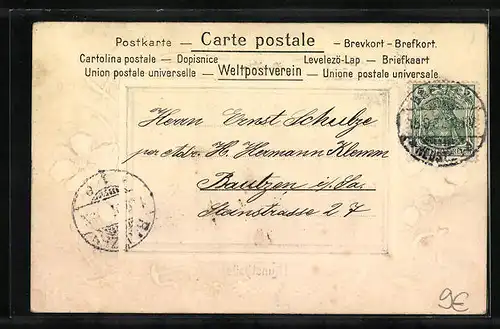 Postkarte — Carte postale — Brevkort - Brefkort.
Cartolina postale — Dopisnice Levelező-Lap — Briefkaart
Union postale universelle — Weltpostverein — Unione postale universale.
Herrn Ernst Schulze
per Adr. H. Hermann Klemm
Bautzen i. Sa.
Steinstrasse 27
9€